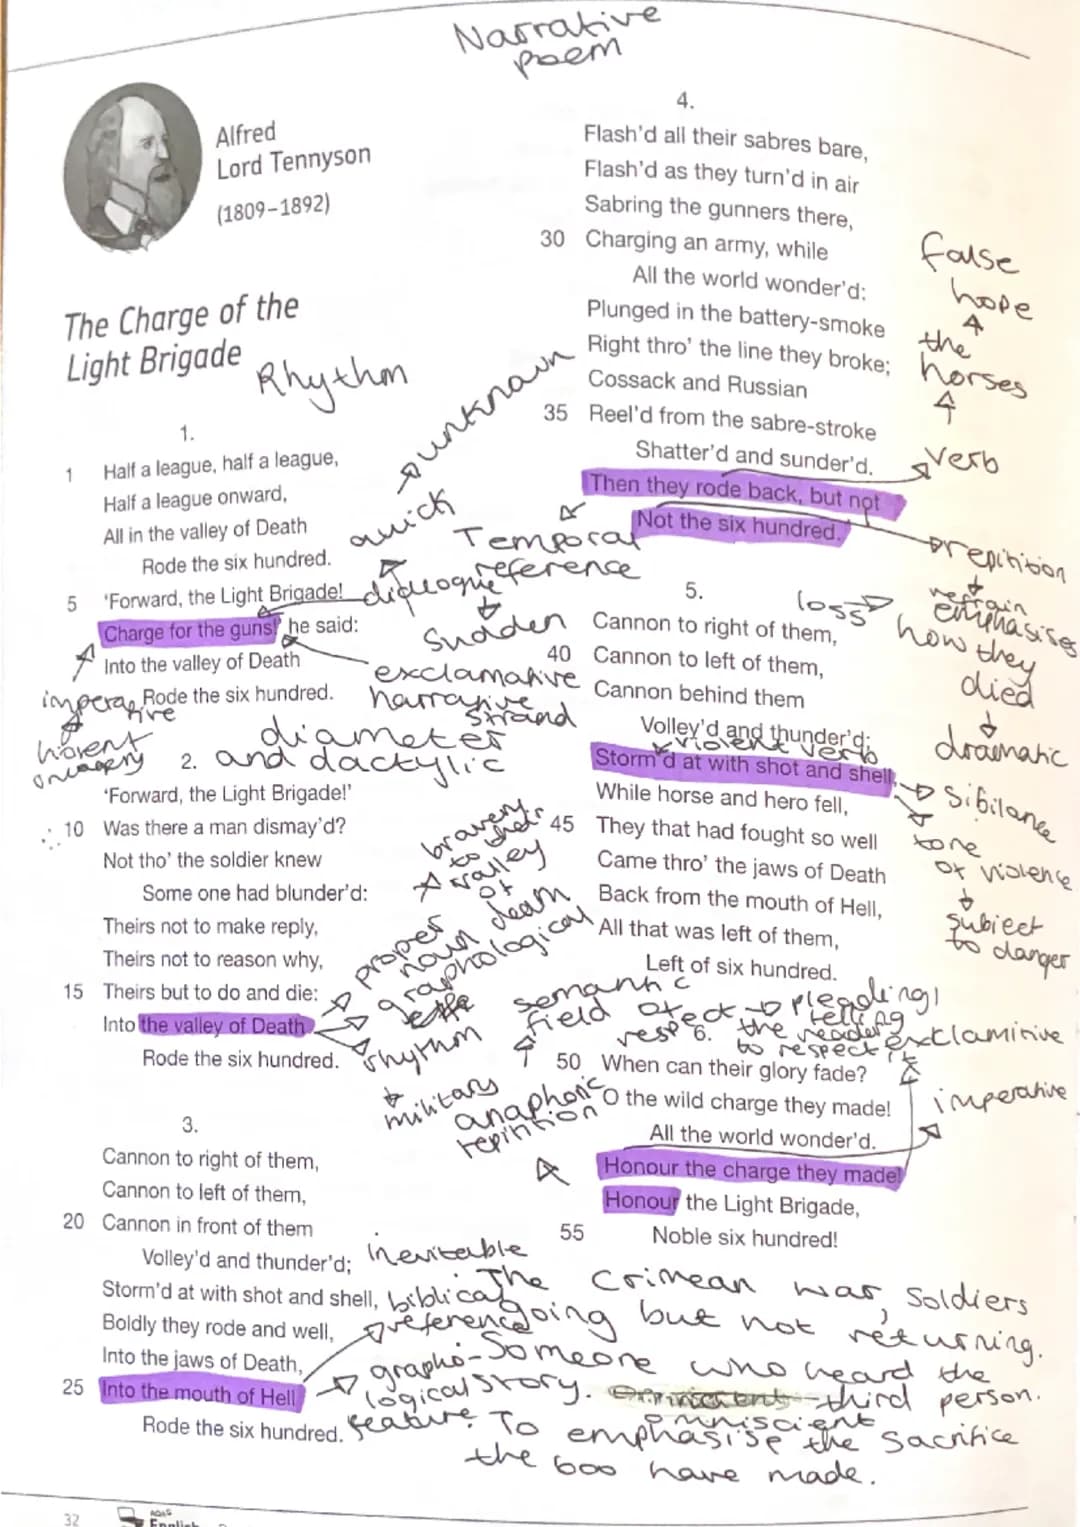 Narrative
poem
Alfred
Lord Tennyson
(1809–1892)
The Charge of the
Light Brigade
Rhythm
1.
1 Half a league, half a league,
Half a league onward,
All in the valley of Death
Rode the six hundred.
5 'Forward, the Light Brigade!
Charge for the guns!' he said:
Into the valley of Death
Rode the six hundred.
unknown
quick
dialogue
Temporal
reference
sudden
exclamative
narrative
strand
imperative
diameter
and dactylic
2.
'Forward, the Light Brigade!'
10 Was there a man dismay'd?
Not tho' the soldier knew
Some one had blunder'd:
Theirs not to make reply,
Theirs not to reason why,
15 Theirs but to do and die:
Into the valley of Death
Rode the six hundred.
bravery
to their
valley
of
death
proper
noun
graphological
rhythm
military
3.
Cannon to right of them,
Cannon to left of them,
20 Cannon in front of them
Volley'd and thunder'd;
Storm'd at with shot and shell,
Boldly they rode and well,
Into the jaws of Death,
25 Into the mouth of Hell
Rode the six hundred.
inevitable
biblical
reference
grapho-
logical
feature
4.
Flash'd all their sabres bare,
Flash'd as they turn'd in air
Sabring the gunners there,
30 Charging an army, while
All the world wonder'd:
Plunged in the battery-smoke
Right thro' the line they broke;
Cossack and Russian
35 Reel'd from the sabre-stroke
Shatter'd and sunder'd.
Then they rode back, but not
Not the six hundred.
false
hope
the
horses
verb
repitition
refrain
emphasises
how they
died
dramatic
loss
5.
Cannon to right of them,
40 Cannon to left of them,
Cannon behind them
Volley'd and thunder'd;
violent verb
Storm'd at with shot and shell,
While horse and hero fell,
45 They that had fought so well
Came thro' the jaws of Death
Back from the mouth of Hell,
All that was left of them,
Left of six hundred.
sibilance
tone
of violence
subject
to danger
semantic
field of
resp ect
pleading/
telling
the reader
to respect it
exclamitive
imperative
anaphoric
repinition
6.
50 When can their glory fade?
O the wild charge they made!
All the world wonder'd.
Honour the charge they made!
Honour the Light Brigade,
55 Noble six hundred!
The Crimean war, soldiers
going but not returning.
Someone who heard the
story. third person.
omniscient
To emphasise the sacrifice
the 600 have made.
32
AQA
English